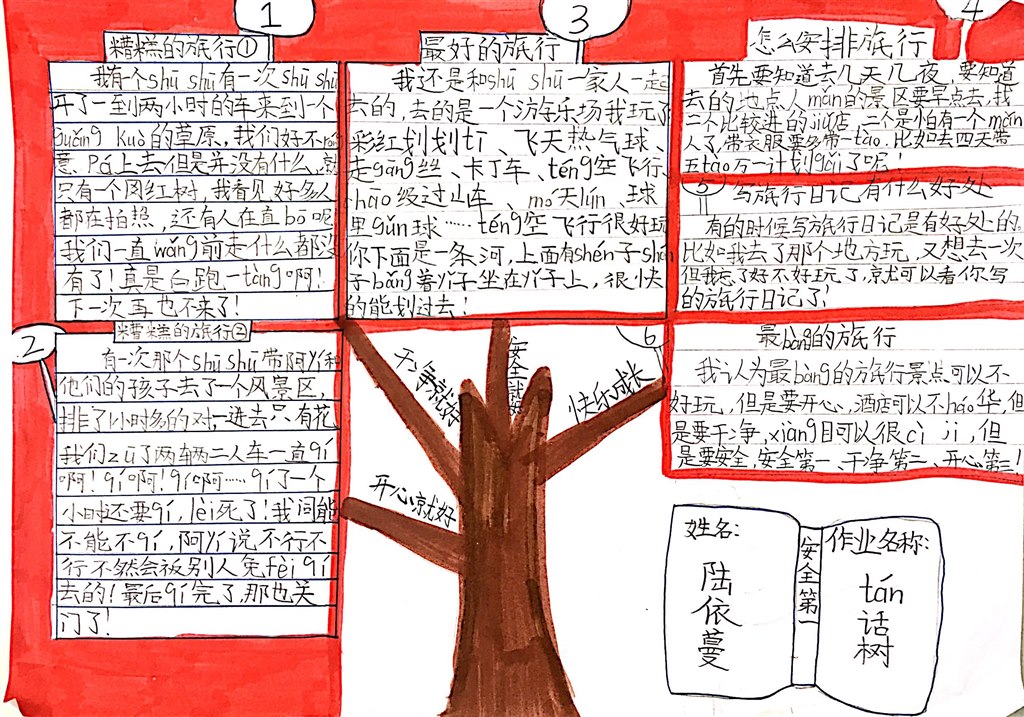 1
糟糕的旅行①
我有个shū shū有一次shū shū
开了一到两小时的车来到一个
guǎng kuò的草原，我们好不róng
意pá上去但是并没有什么，就
只有一个网红树，我看见好多人
都在拍照，还有人在直bō呢
我们一直wǎng前走什么都没
有了！真是白跑一tàng啊！
下一次再也不来了！
2
糟糕的旅行②
有一次那个shū shū带阿yí和
他们的孩子去了一个风景区，
排了1小时多的对，一进去只有花
我们zū了两辆二人车一直qí
啊！qí啊！qí啊……qí了一个
小时还要qí，lèi死了！我问能
不能不qí，阿yí说不行不
行不然会被别人免fèi qí
去的！最后qí完了，那也关
门了！
3
最好的旅行
我还是和shū shū一家人一起
去的，去的是一个游乐场我玩了
彩红划划tī、飞天热气球、
走gāng丝、卡丁车、téng空飞行、
chāo级过山车、mó天lún、球
里gǔn球……téng空飞行很好玩
你下面是一条河，上面有shén子shén
子bǎng着yǐ子坐在yǐ子上，很快
的能划过去！
4
怎么安排旅行
首先要知道去几天几夜，要知道
去的地点人mǎn的景区要早点去，找
二个比较进的jiǔ店，二个是小白有一个mǎn
人了，带衣服要多带一tào，比如去四天带
五tào万一计划gǎi了呢！
5
写旅行日记有什么好处
有的时候写旅行日记是有好处的。
比如我去了那个地方玩，又想去一次
但我忘了好不好玩了，京就可以看你写
的旅行日记了！
6
最bàng的旅行
我认为最bàng的旅行景点可以不
好玩，但是要开心，酒店可以不háo华，但
是要干净，xiàng目可以很cì jī，但
是要安全，安全第一、干净第二、开心第三！
干净就好
安全就好
快乐成长
开心就好
姓名：
陆依蔓
安全第一
作业名称：
tán
话
树